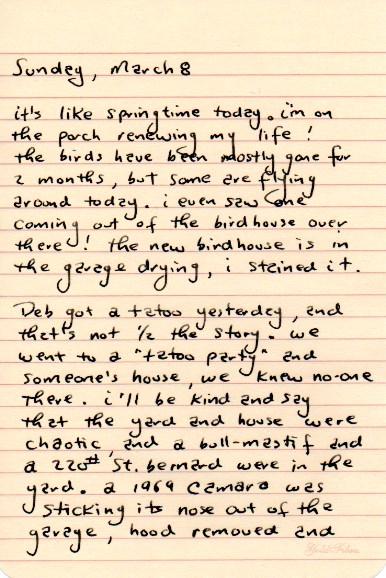 Sunday, March 8
it's like springtime today. i'm on
the porch renewing my life!
the birds have been mostly gone for
2 months, but some are flying
around today. i even saw one
coming out of the birdhouse over
there! the new birdhouse is in
the garage drying, i stained it.
Deb got a tatoo yesterday, and
that's not ½ the story. we
went to a "tatoo party" and
someone's house, we knew no-one
there. i'll be kind and say
that the yard and house were
chaotic, and a bull-mastif and
a 220# St. bernard were in the
yard. a 1969 Camaro was
sticking its nose out of the
garage, hood removed and